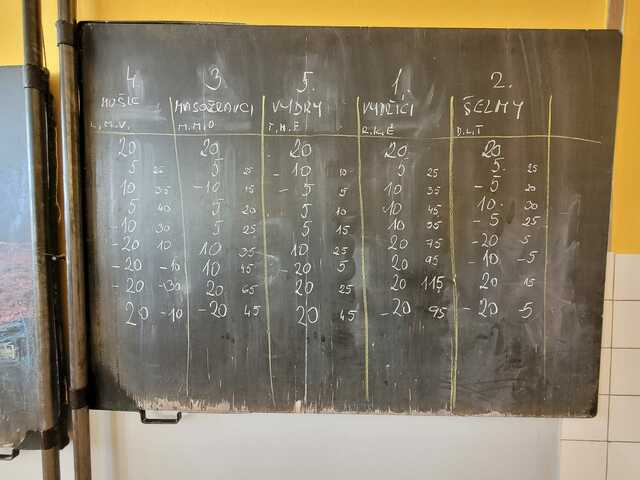 4. 3. 5. 1. 2.
MUŠLE MASOŽRAVCI VYDRY ŠELMY
L.M.V. M.M.O T.H.F R.K.E D.L.T
20 20 20 20 20
5 25 5 25 -10 10 5 25 5 25
10 35 -10 15 -5 5 10 35 -5 20
5 40 5 20 5 10 10 45 10 30
-10 30 5 25 5 15 10 55 -5 25
-20 10 10 35 10 25 20 75 -20 5
-20 -10 10 45 -20 5 20 95 -10 -5
-20 -30 20 65 20 25 20 115 20 15
20 -10 -20 45 20 45 -20 95 -20 -5